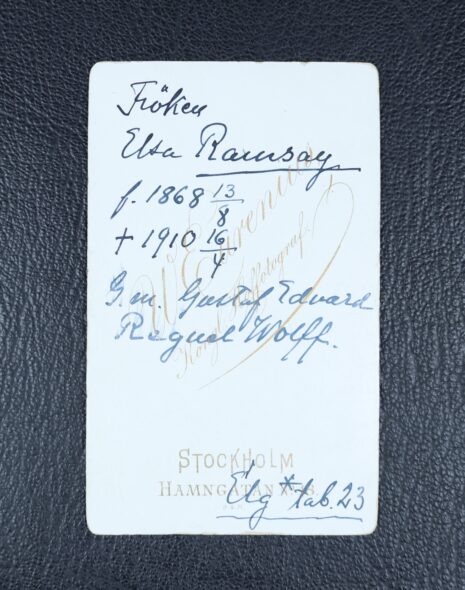 Fröken
Elsa Ramsay
f. 1868 13/8
+ 1910 16/4
W. Lundberg
G.m. Gustaf Edvard
Raguel Wolff.
Kongl. Hoffotograf.
STOCKHOLM
HAMNGATAN
Elg * tab. 23